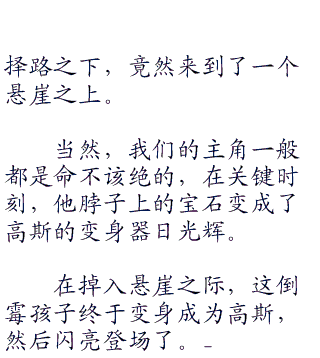 择路之下，竟然来到了一个
悬崖之上。
当然，我们的主角一般
都是命不该绝的，在关键时
刻，他脖子上的宝石变成了
高斯的变身器日光辉。
在掉入悬崖之际，这倒
霉孩子终于变身成为高斯，
然后闪亮登场了。_